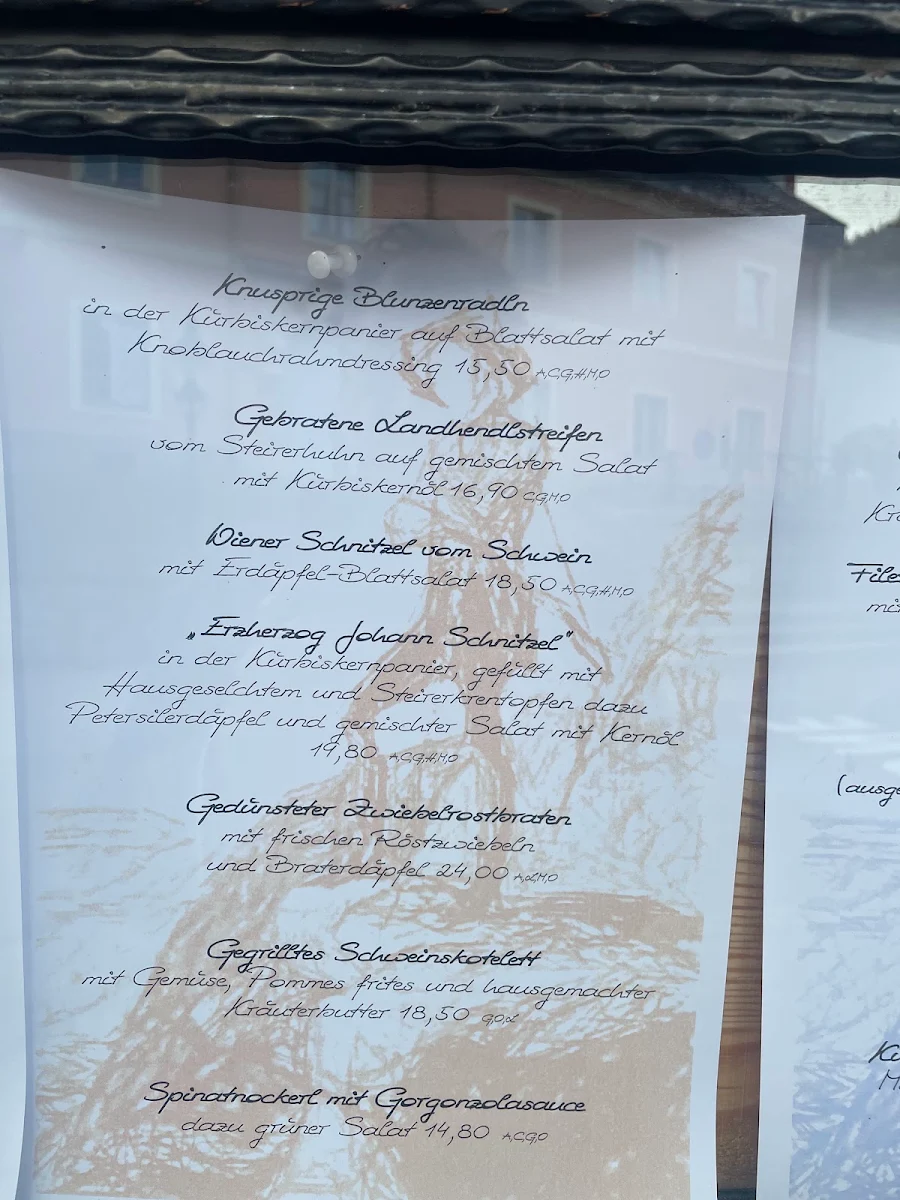 Knusprige Blunzenradln
in der Kürbiskernpanier auf Blattsalat mit
Knoblauchrahmdressing 15,50 A,C,G,H,M,O
Gebratene Landhendlstreifen
vom Steirerhuhn auf gemischtem Salat
mit Kürbiskernöl 16,90 C,G,M,O
Wiener Schnitzel vom Schwein
mit Erdäpfel-Blattsalat 18,50 A,C,G,H,M,O
„Erzherzog Johann Schnitzel"
in der Kürbiskernpanier, gefüllt mit
Hausgeselchtem und Steirerkrentopfen dazu
Petersilerdäpfel und gemischter Salat mit Kernöl
19,80 A,C,G,H,M,O
Gedünsteter Zwiebelrostbraten
mit frischen Röstzwiebeln
und Braterdäpfel 24,00 A,L,M,O
Gegrilltes Schweinskotelett
mit Gemüse, Pommes frites und hausgemachter
Kräuterbutter 18,50 G,O,L
Spinatnockerl mit Gorgonzolasauce
dazu grüner Salat 14,80 A,C,G,O
(ausge